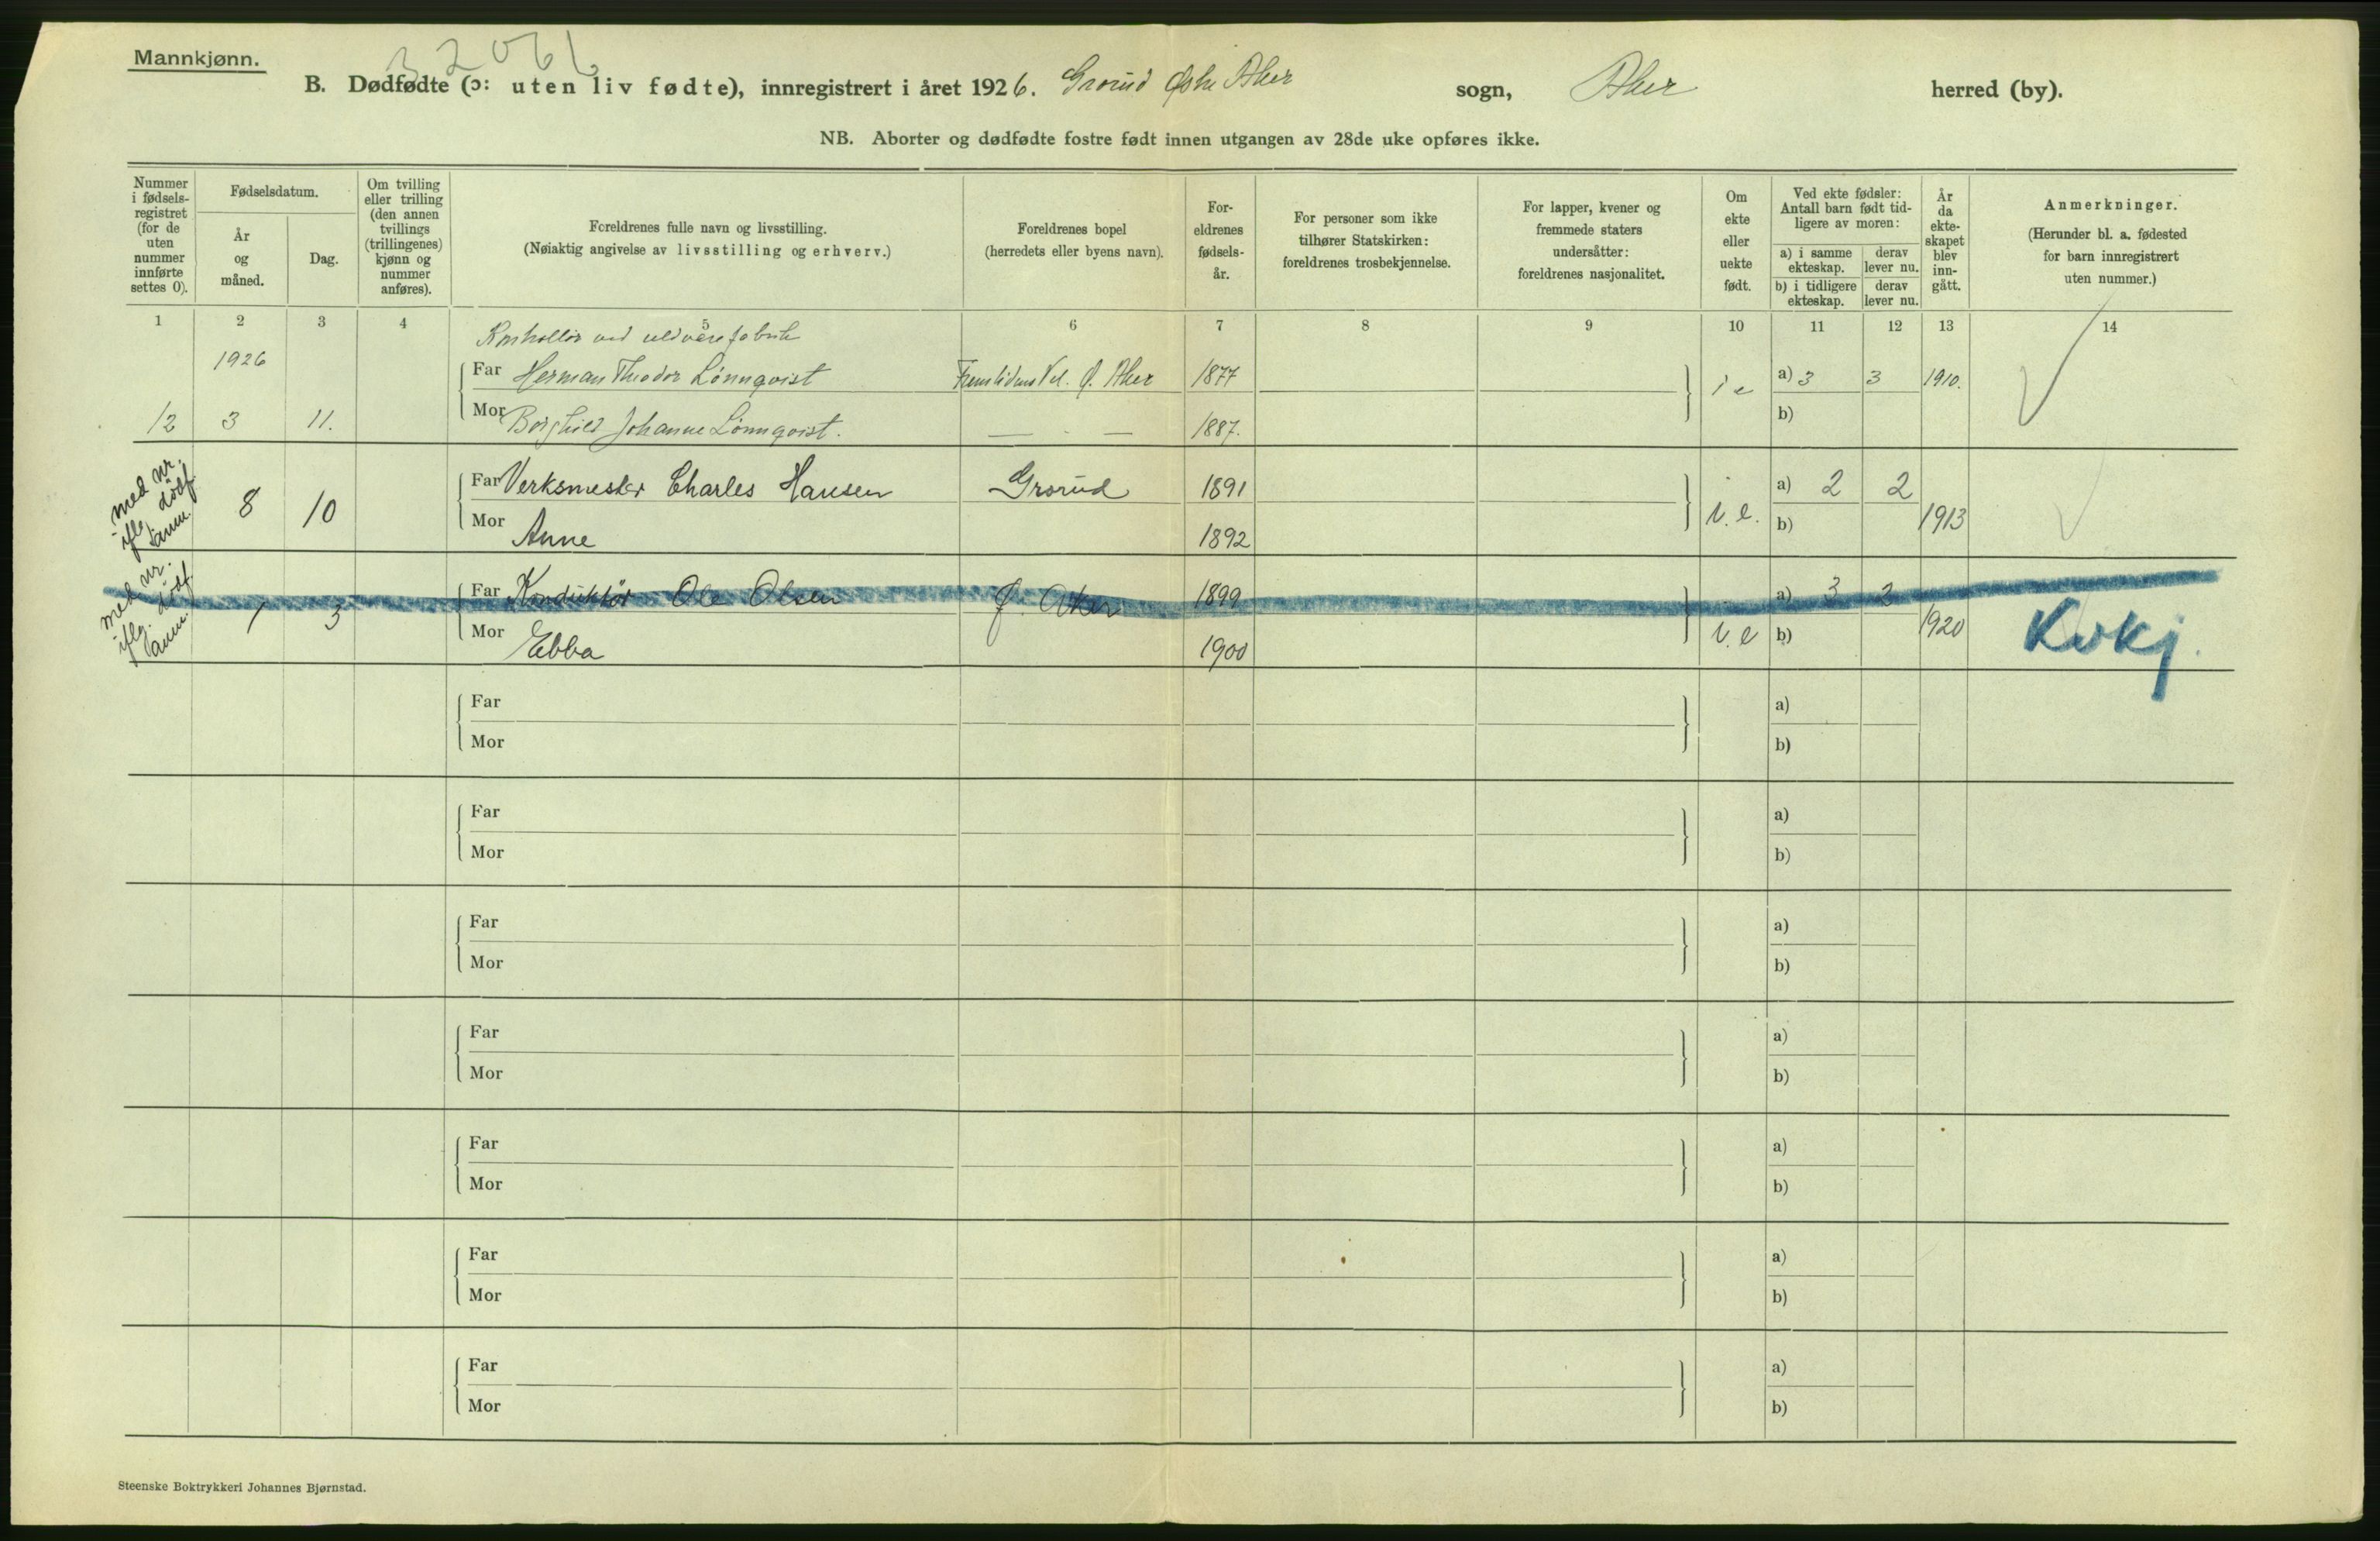 Mannkjønn.
32061
B. Dødfødte (ɔ: uten liv fødte), innregistrert i året 1926. Grorud Østre Aker sogn, Aker herred (by).
NB. Aborter og dødfødte fostre født innen utgangen av 28de uke opføres ikke.
Nummer i fødsels-registret (for de uten nummer innførte settes 0).
Fødselsdatum.
År og måned.
Dag.
Om tvilling eller trilling (den annen tvillings (trillingenes) kjønn og nummer anføres).
Foreldrenes fulle navn og livsstilling.
(Nøiaktig angivelse av livsstilling og erhverv.)
Foreldrenes bopel
(herredets eller byens navn).
For-eldrenes fødsels-år.
For personer som ikke tilhører Statskirken: foreldrenes trosbekjennelse.
For lapper, kvener og fremmede staters undersåtter: foreldrenes nasjonalitet.
Om ekte eller uekte født.
Ved ekte fødsler: Antall barn født tid-ligere av moren:
a) i samme ekteskap.
derav lever nu.
b) i tidligere ekteskap.
derav lever nu.
År da ekte-skapet blev inn-gått.
Anmerkninger.
(Herunder bl. a. fødested for barn innregistrert uten nummer.)
1 2 3 4 5 6 7 8 9 10 11 12 13 14
1926
Far Herman Theodor Lönnqvist Ø. Aker 1877 a) 3 3 1910.
i e
12 3 11. Mor Borghild Johanne Lönnqvist. — - — 1887. b)
med nr. ifle dödf. anm.
Far Verksmester Charles Hansen Grorud 1891 a) 2 2
8 10 Mor Anne 1892 i. e. b) 1913
med nr. iflg. dödf. anm.
Far Konduktör Ole Olsen Ø. Aker 1899 a) 3 2
1 3 Mor Ebba 1900 i. e b) 1920 Kvkj.
Far a)
Mor b)
Far a)
Mor b)
Far a)
Mor b)
Far a)
Mor b)
Far a)
Mor b)
Far a)
Mor b)
Far a)
Mor b)
Steenske Boktrykkeri Johannes Bjørnstad.